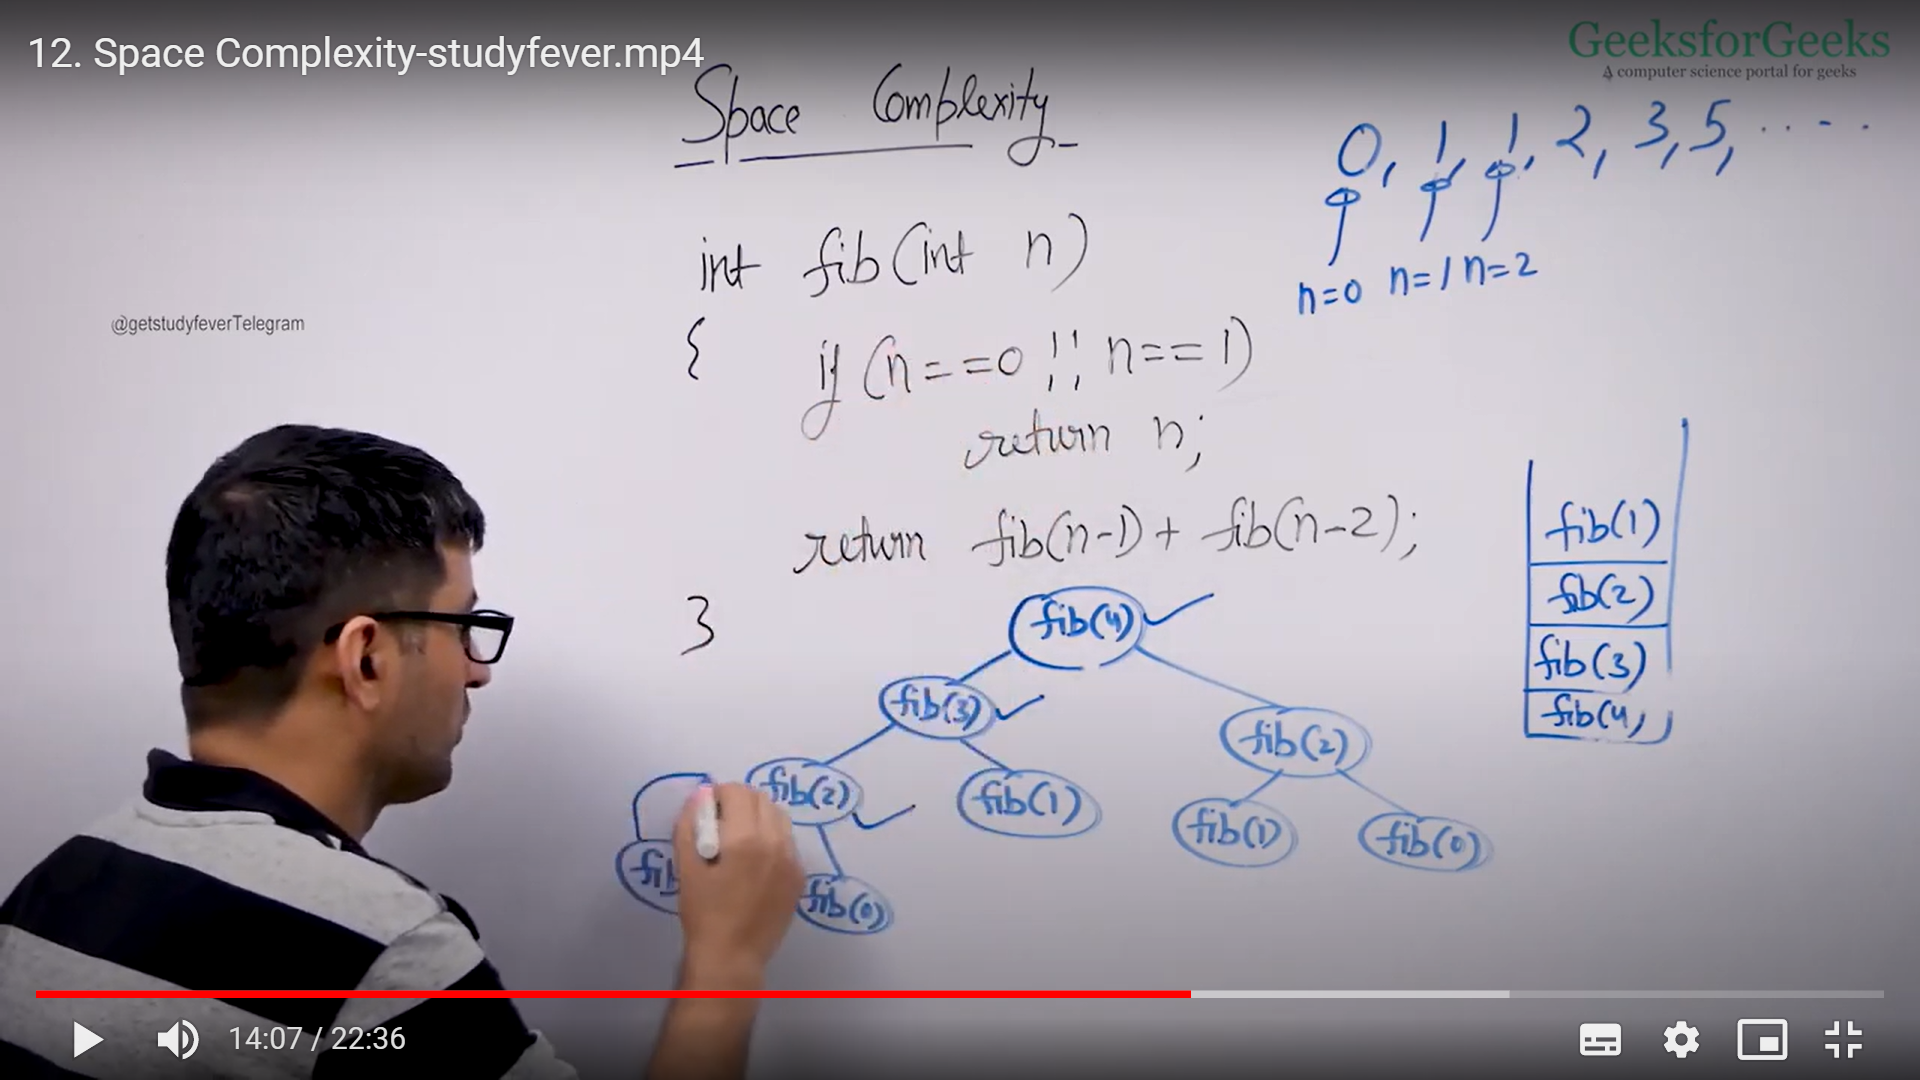 12. Space Complexity-studyfever.mp4
GeeksforGeeks
A computer science portal for geeks
Space Complexity
0, 1, 1, 2, 3, 5, ....
n=0 n=1 n=2
int fib(int n)
@getstudyfeverTelegram
{
if (n==0 || n==1)
return n;
return fib(n-1) + fib(n-2);
}
fib(1)
fib(2)
fib(3)
fib(4)
fib(4)
fib(3)
fib(2)
fib(2)
fib(1)
fib(1)
fib(0)
fib(0)
14:07 / 22:36